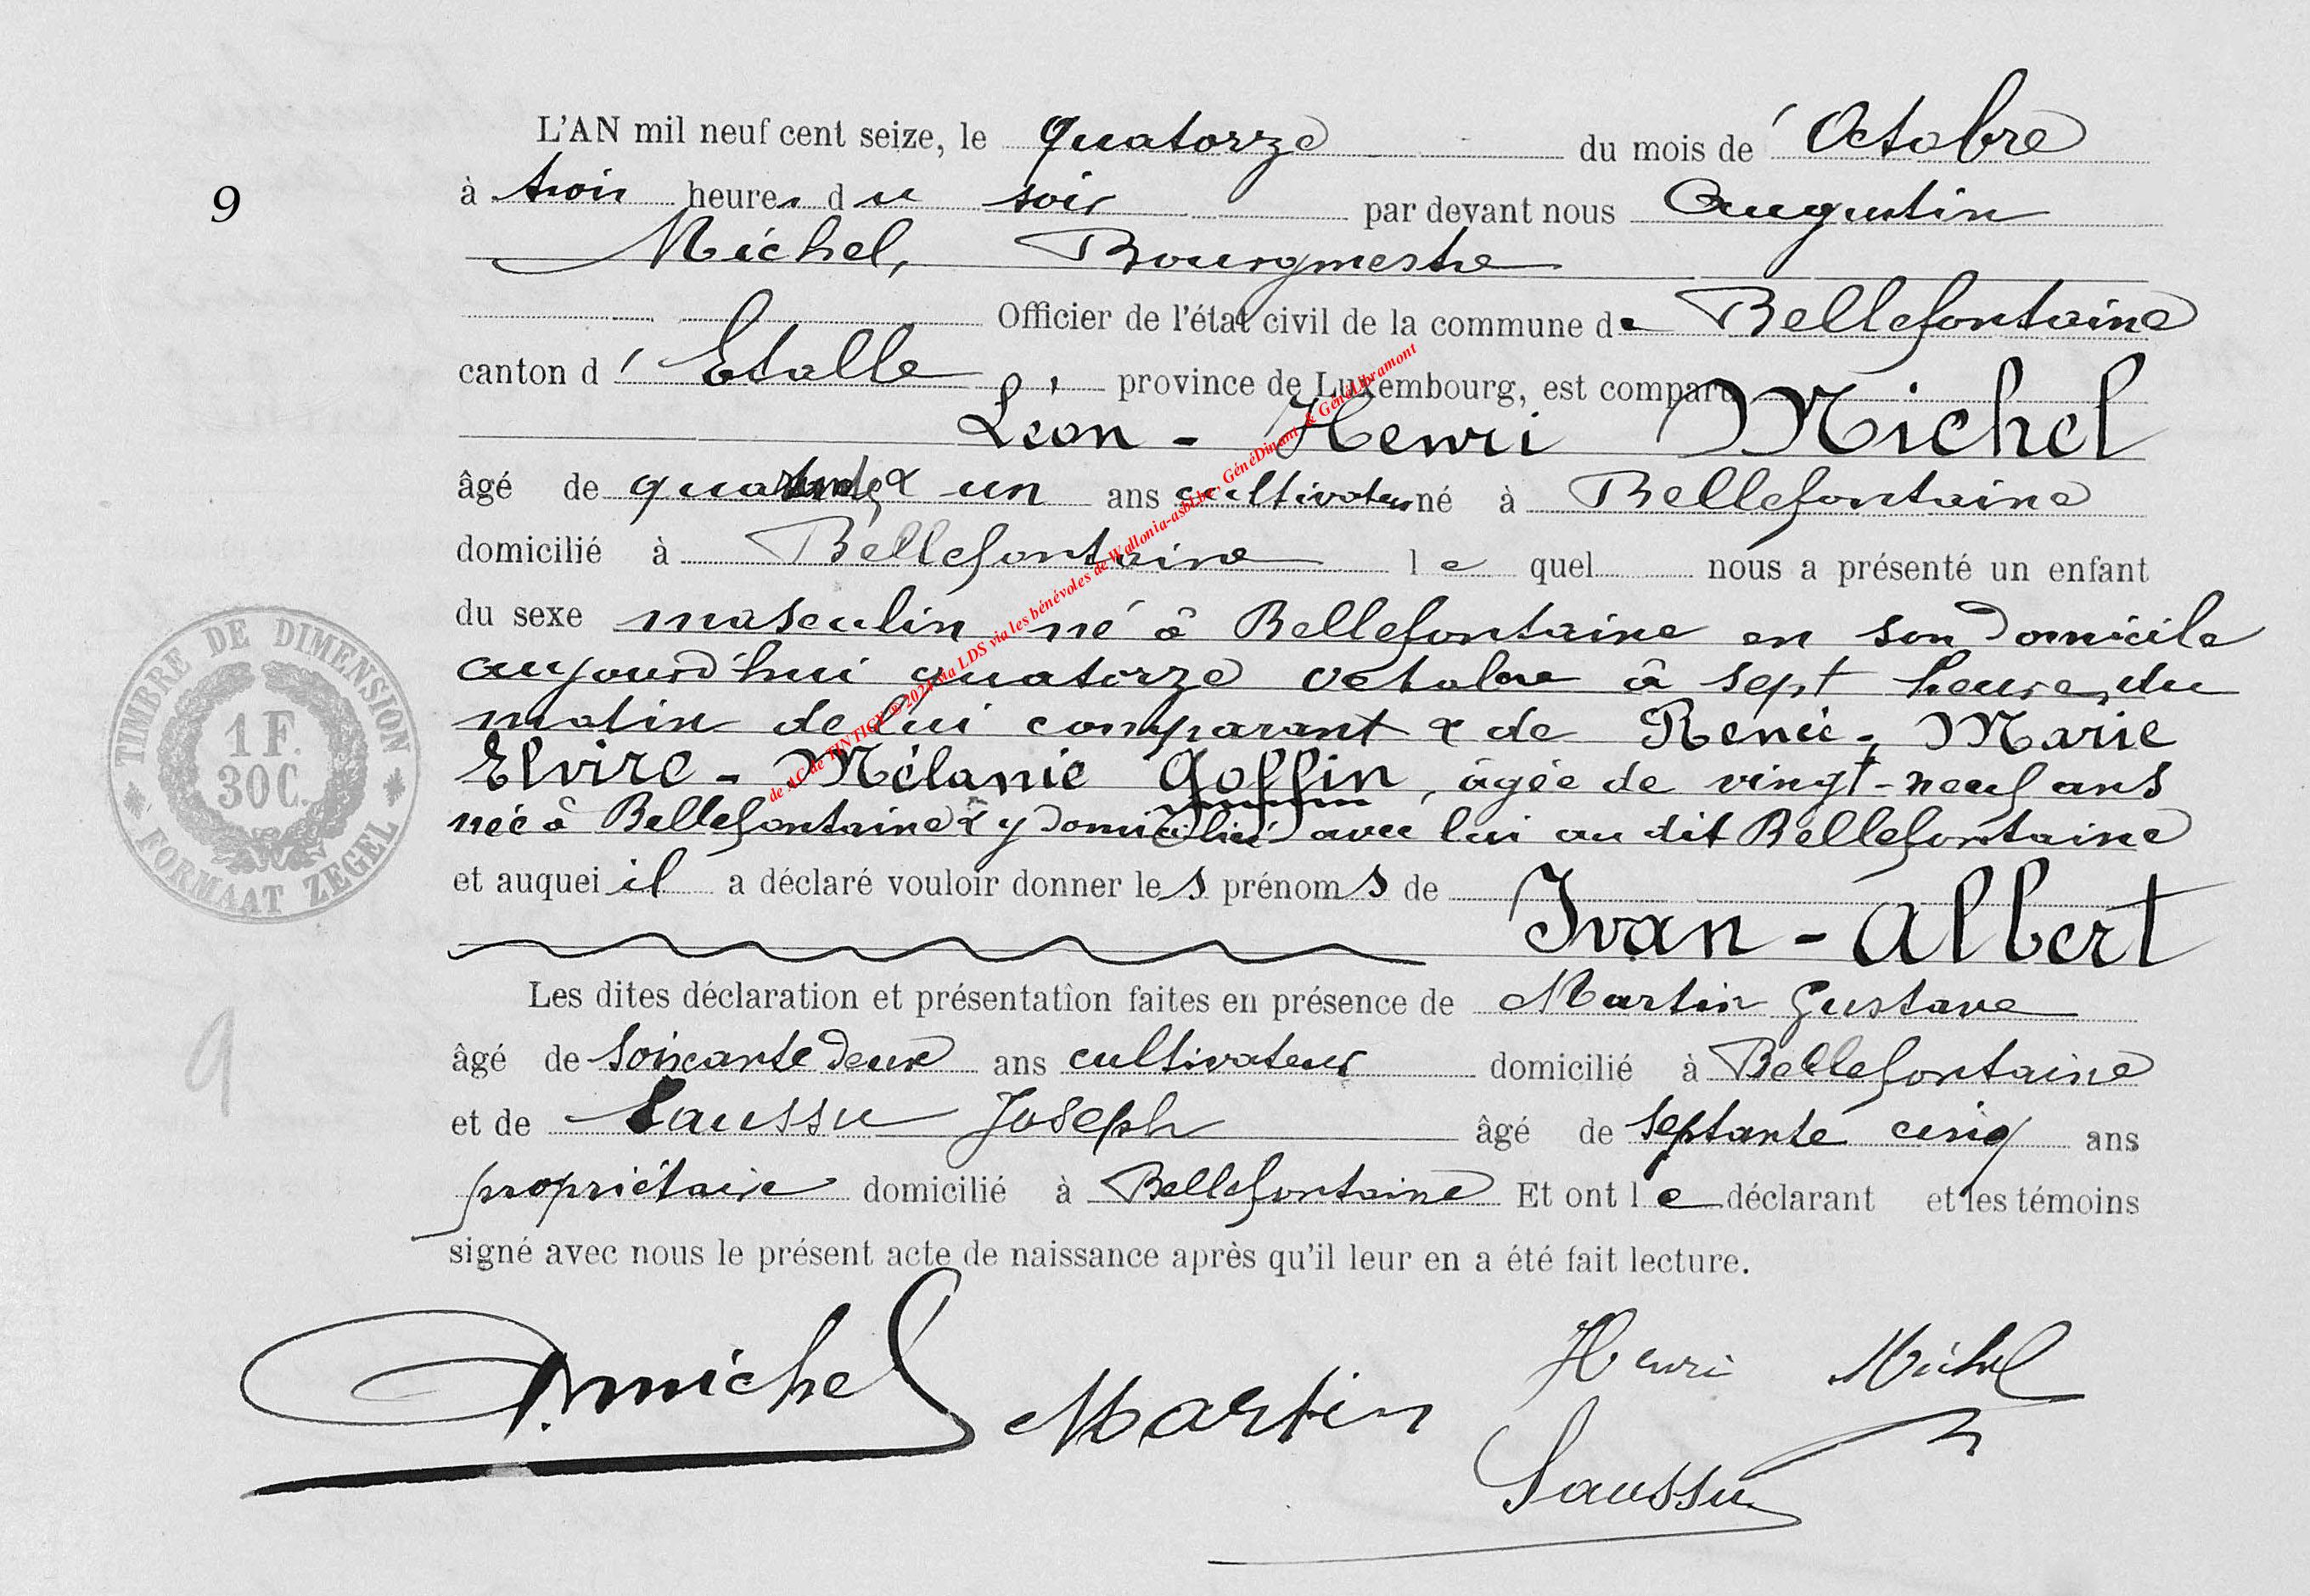 L'AN mil neuf cent seize, le quatorze du mois de Octobre
9
à trois heures du soir par devant nous Augustin
Michel, Bourgmestre
Officier de l'état civil de la commune de Bellefontaine
canton d' Etalle province de Luxembourg, est comparu
Léon - Henri Michel
âgé de & un ans cultivateur né à Bellefontaine
domicilié à Bellefontaine le quel nous a présenté un enfant
du sexe masculin né à Bellefontaine en son domicile
aujourd'hui quatorze octobre à sept heures du
matin de lui comparant & de Renée - Marie
Elvire - Mélanie Goffin, âgée de vingt-neuf ans
née à Bellefontaine & y domiciliée avec lui au dit Bellefontaine
et auquel il a déclaré vouloir donner les prénoms de
Ivan - Albert
Les dites déclaration et présentation faites en présence de Martin Gustave
âgé de soixante deux ans cultivateur domicilié à Bellefontaine
et de Saussu Joseph âgé de septante cinq ans
propriétaire domicilié à Bellefontaine Et ont le déclarant et les témoins
signé avec nous le présent acte de naissance après qu'il leur en a été fait lecture.
Amichel Martin Henri Michel
Saussu
TIMBRE DE DIMENSION
1 F.
30 C.
FORMAAT ZEGEL
9
de AC de TINTIGY © 2024 via LDS via les bénévoles de Wallonia-asbl.be, GénéDinant & GénéLibramont